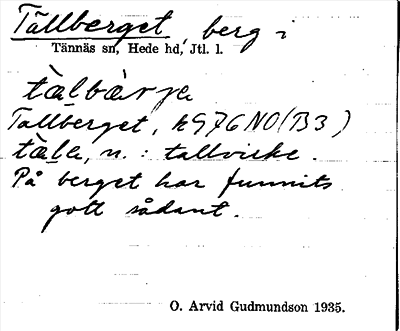 Tällberget, berg i
Tännäs sn, Hede hd, Jtl. l.
tälbärje
Tallberget, h976 NO (B3)
täle, n. : tallvirke.
På berget har funnits
gott sådant.
O. Arvid Gudmundson 1935.